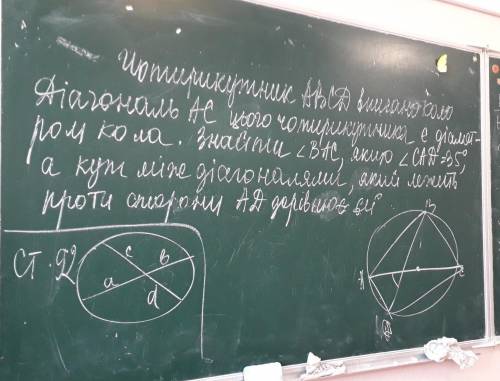 Чотирикутник ABCD вписано коло
Діагональ AC цього чотирикутника є діамет-
ром кола. Знайти ∠BAC, якщо ∠CAD=35°,
а кут між діагоналями, який лежить
проти сторони AD дорівнює
СТ. 92
c b
a d
B
A C
D